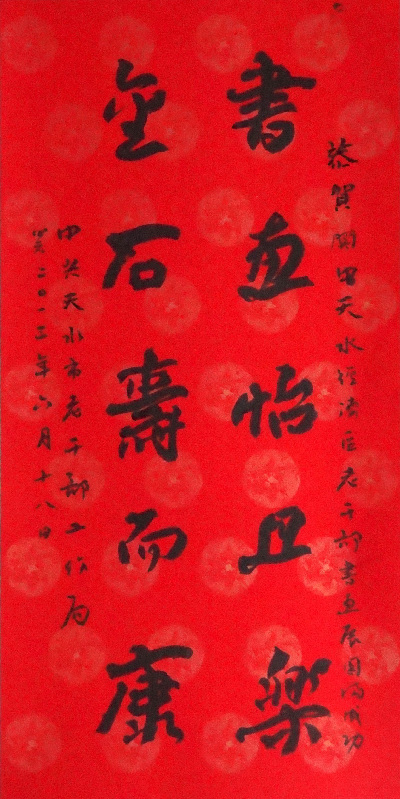 恭賀關中天水經濟區老干部書画展圓滿成功
書画怡且樂
金石壽而康
中共天水市老干部工作局
二〇一三年六月十八日